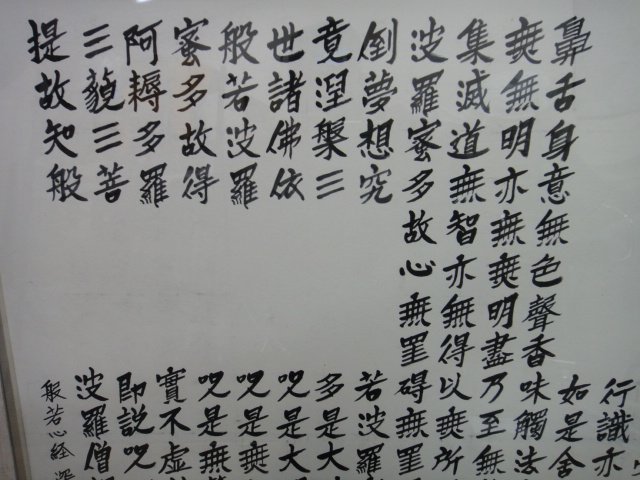 行識亦
如是舍
鼻舌身意無色聲香味觸法
無無明亦無無明盡乃至無
集滅道無智亦無得以無所
波羅蜜多故心無罣碍無罣
倒夢想究
竟涅槃三
世諸佛依
般若波羅
蜜多故得
阿耨多羅
三藐三菩
提故知般
若波羅
多是大
呪是大
呪是無
呪是無
實不虛
即說呪
波羅僧
般若心経